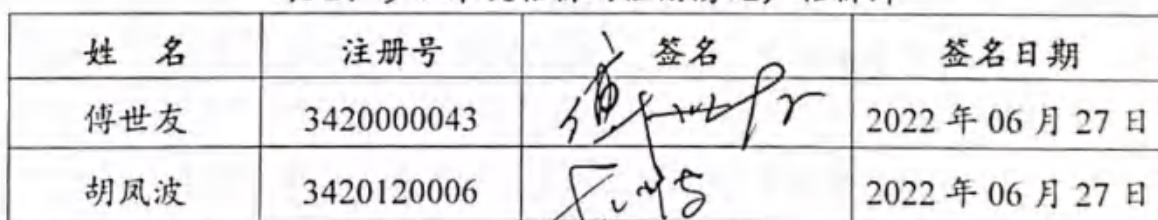 姓 名 注册号 签名 签名日期
傅世友 3420000043 傅世友 2022 年 06 月 27 日
胡凤波 3420120006 2022 年 06 月 27 日